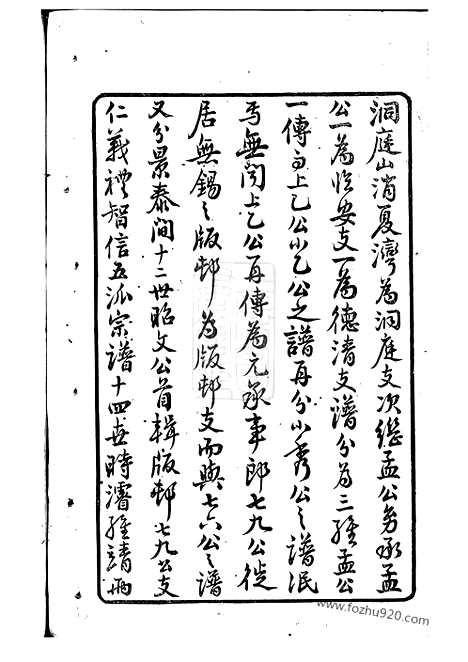 洞庭山消夏灣為洞庭支次繼孟公另承孟
公一為臨安支一為德清支譜分為三繼孟公
一傳而上乙公小乙公之譜再分小秀公之譜泯
焉無聞上乙公再傳為元承事郎七九公徙
居無錫之版邨為版邨支而與七六公之譜
又分景泰間十二世昭文公首輯版邨七九公支
仁義禮智信五派宗譜十四世時濬經請兩
www.fozhu920.com